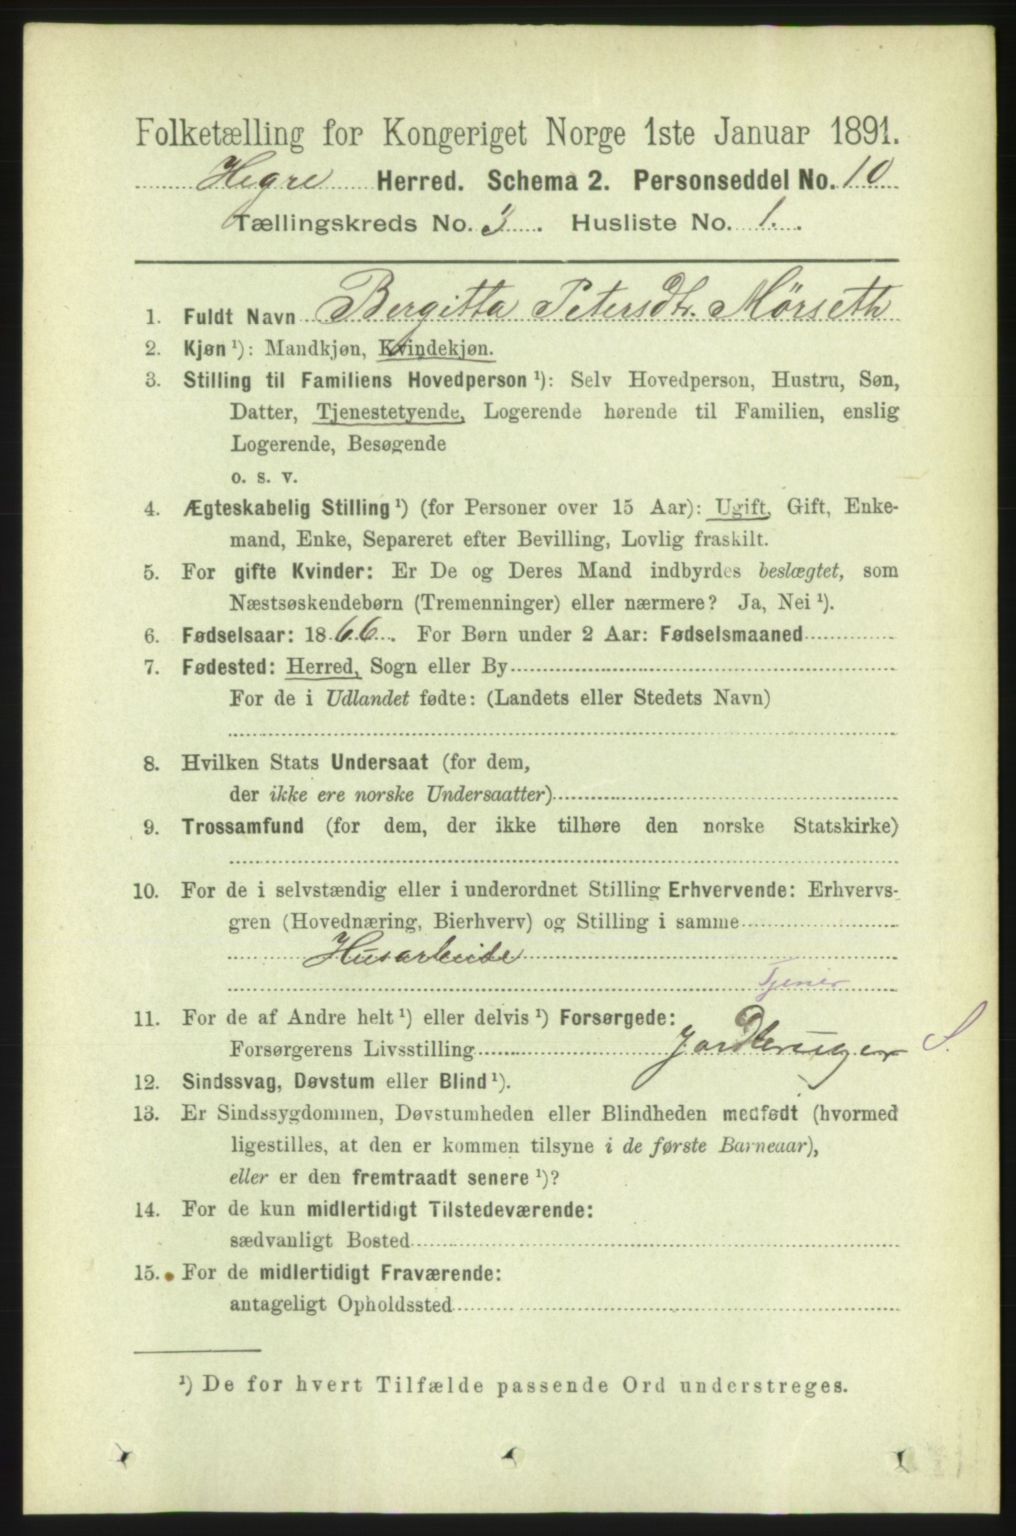 Folketælling for Kongeriget Norge 1ste Januar 1891.
Hegre Herred. Schema 2. Personseddel No. 10
Tællingskreds No. 3. Husliste No. 1.
1. Fuldt Navn Bergitta Petersdtr. Mørseth
2. Kjøn ¹): Mandkjøn, Kvindekjøn.
3. Stilling til Familiens Hovedperson ¹): Selv Hovedperson, Hustru, Søn,
Datter, Tjenestetyende, Logerende hørende til Familien, enslig
Logerende, Besøgende
o. s. v.
4. Ægteskabelig Stilling ¹) (for Personer over 15 Aar): Ugift, Gift, Enke-
mand, Enke, Separeret efter Bevilling, Lovlig fraskilt.
5. For gifte Kvinder: Er De og Deres Mand indbyrdes beslægtet, som
Næstsøskendebørn (Tremenninger) eller nærmere? Ja, Nei ¹).
6. Fødselsaar: 1866. For Børn under 2 Aar: Fødselsmaaned
7. Fødested: Herred, Sogn eller By
For de i Udlandet fødte: (Landets eller Stedets Navn)
8. Hvilken Stats Undersaat (for dem,
der ikke ere norske Undersaatter)
9. Trossamfund (for dem, der ikke tilhøre den norske Statskirke)
10. For de i selvstændig eller i underordnet Stilling Erhvervende: Erhvervs-
gren (Hovednæring, Bierhverv) og Stilling i samme
Husarbeide
Tjener
11. For de af Andre helt ¹) eller delvis ¹) Forsørgede:
Forsørgerens Livsstilling Jordbruger S.
12. Sindssvag, Døvstum eller Blind ¹).
13. Er Sindssygdommen, Døvstumheden eller Blindheden medfødt (hvormed
ligestilles, at den er kommen tilsyne i de første Barneaar),
eller er den fremtraadt senere ¹)?
14. For de kun midlertidigt Tilstedeværende:
sædvanligt Bosted
15. For de midlertidigt Fraværende:
antageligt Opholdssted
¹) De for hvert Tilfælde passende Ord understreges.